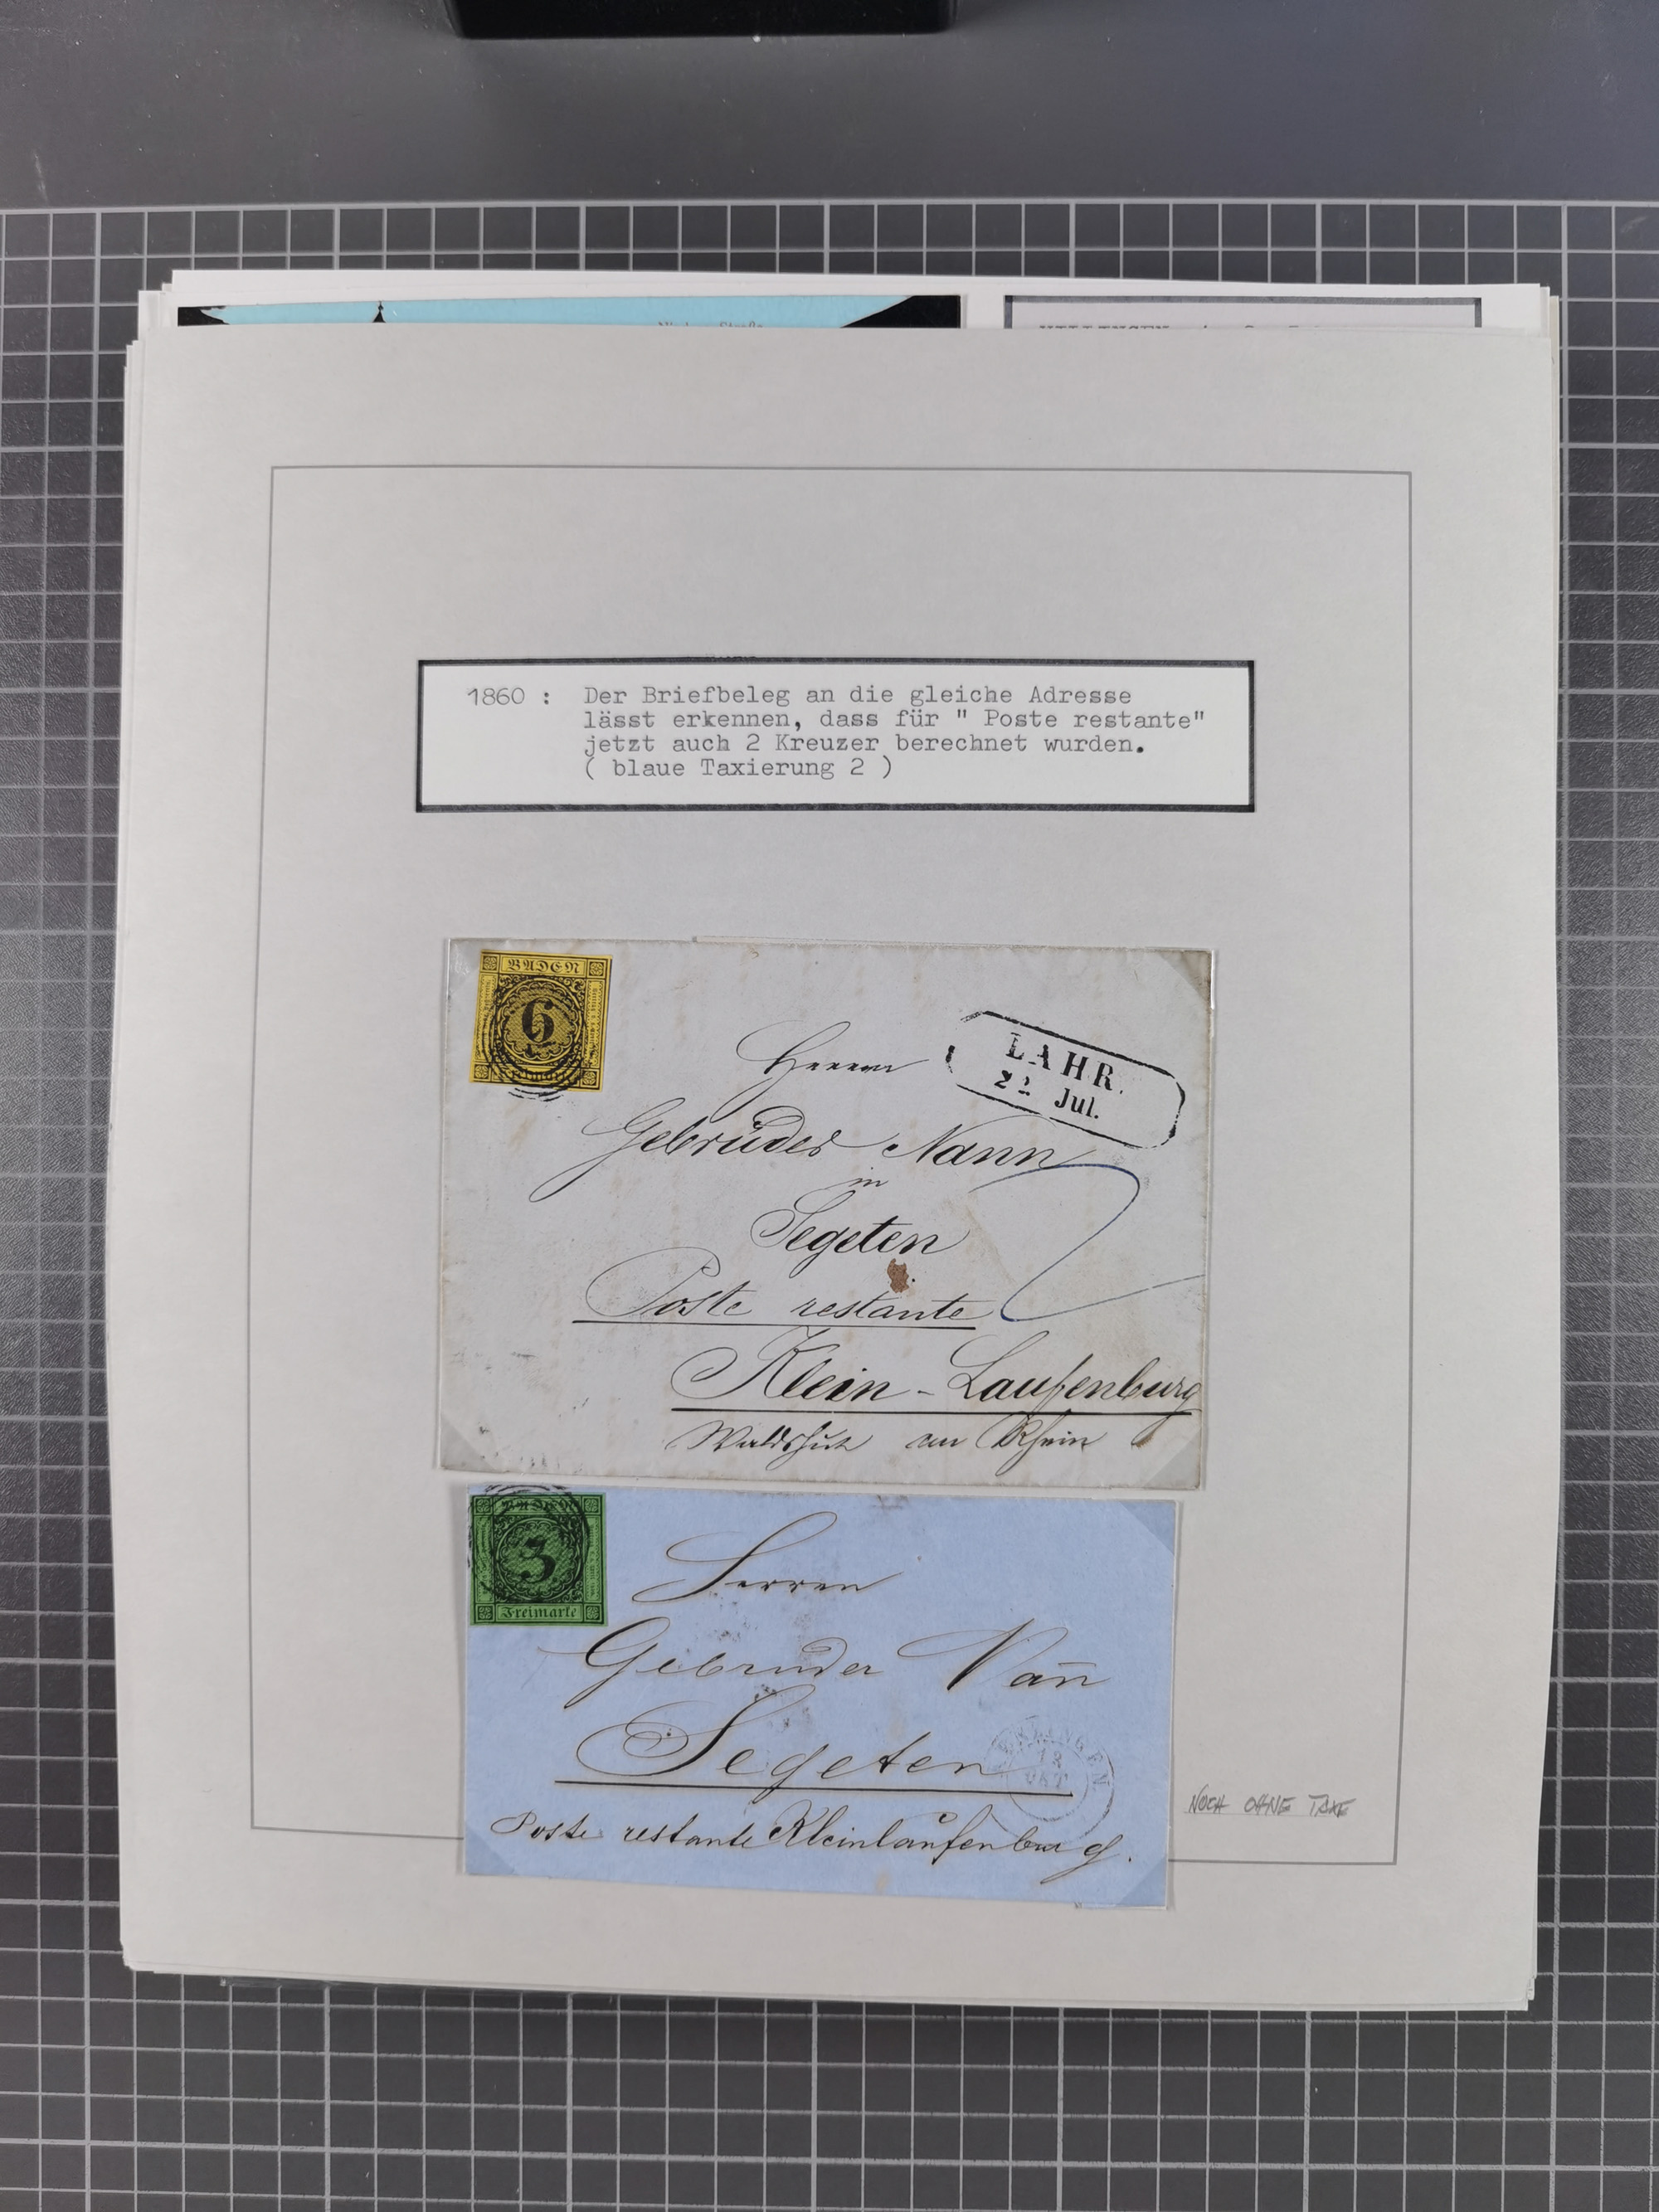 1860 : Der Briefbeleg an die gleiche Adresse
lässt erkennen, dass für " Poste restante"
jetzt auch 2 Kreuzer berechnet wurden.
( blaue Taxierung 2 )
BADEN
6
LAHR.
22 Jul.
Herrn
Gebrüder Nann
in
Segeten
2
Poste restante
Klein-Laufenburg
Waldshut am Rhein
BADEN
3
Freimarke
Herren
Gebrüder Nan̄
Segeten
12
OKT
Poste restante Kleinlaufenburg.
NOCH OHNE TAXE